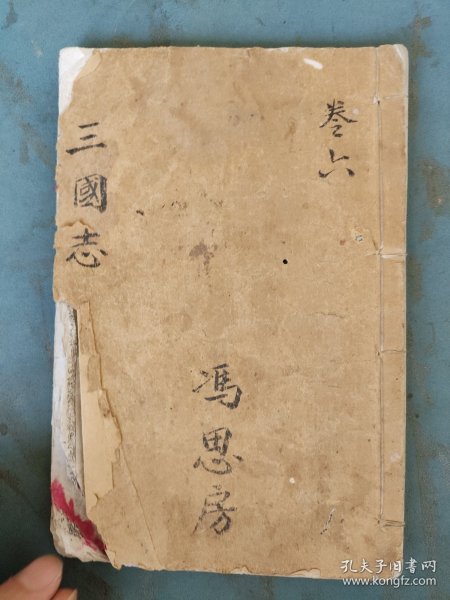 卷六
三國志
馮思房
孔夫子旧书网
www.kongfz.com